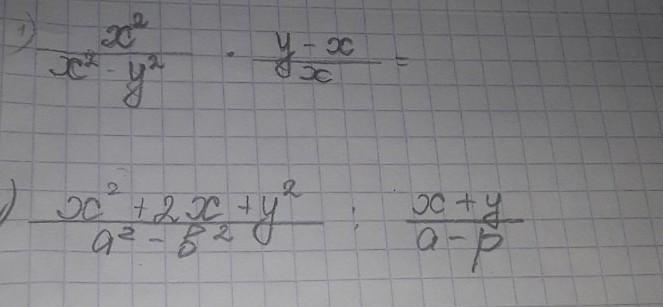 1) x²/(x² - y²) · (y - x)/x =
) (x² + 2x + y²)/(a² - b²) : (x + y)/(a - p)